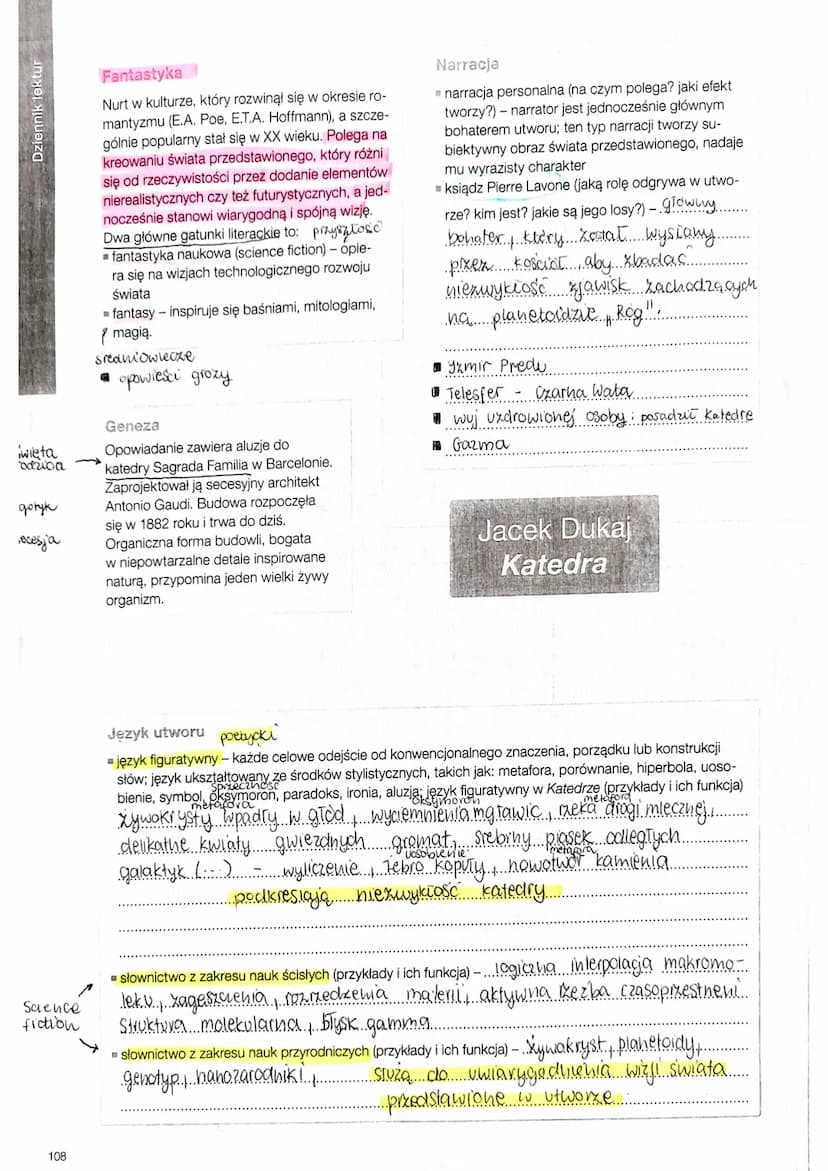 Dziennik lektur
Fantastyka
Nurt w kulturze, który rozwinął się w okresie ro-
mantyzmu (E.A. Poe, E.T.A. Hoffmann), a szcze-
gólnie popularny stał się w XX wieku. Polega na
kreowaniu świata przedstawionego, który różni
się od rzeczywistości przez dodanie elementów
nierealistycznych czy też futurystycznych, a jed-
nocześnie stanowi wiarygodną i spójną wizję.
Dwa główne gatunki literackie to: przyszłość
fantastyka naukowa (science fiction) – opie-
ra się na wizjach technologicznego rozwoju
świata
fantasy – inspiruje się baśniami, mitologiami,
magią.
średniowiecze
opowieści grozy
Geneza
Opowiadanie zawiera aluzje do
katedry Sagrada Familia w Barcelonie.
Zaprojektował ją secesyjny architekt
Antonio Gaudi. Budowa rozpoczęła
się w 1882 roku i trwa do dziś.
Organiczna forma budowli, bogata
w niepowtarzalne detale inspirowane
naturą, przypomina jeden wielki żywy
organizm.
gotyk
Narracja
narracja personalna (na czym polega? jaki efekt
tworzy?) – narrator jest jednocześnie głównym
bohaterem utworu; ten typ narracji tworzy su-
biektywny obraz świata przedstawionego, nadaje
mu wyrazisty charakter
ksiądz Pierre Lavone (jaką rolę odgrywa w utwo-
rze? kim jest? jakie są jego losy?) – główny
bohater, który został wysłany
przez kościół, aby zbadać
niezwykłość zjawisk zachodzących
na planetoidzie „Róg".
Izmir Predu
Telesfer - Czarna Wata
wuj uzdrowionej osoby; posadził Katedrę
Gazma
Jacek Dukaj
Katedra
Język utworu poetycki
język figuratywny – każde celowe odejście od konwencjonalnego znaczenia, porządku lub konstrukcji
słów; język ukształtowany ze środków stylistycznych, takich jak: metafora, porównanie, hiperbola, uoso-
sprzeczność
bienie, symbol, oksymoron, paradoks, ironia, aluzja; język figuratywny w Katedrze (przykłady i ich funkcja)
metafora oksymoron metafora
żywokrysty wpadły w głód, wyciemnienia mgławic, rzeka drogi mlecznej,
delikatne kwiaty gwiezdnych gromat, srebrny piasek odległych
uosobienie metafora
galaktyk (...) - wyliczenie, żebro kopuły, nowotwór kamienia
podkreślają niezwykłość katedry
słownictwo z zakresu nauk ścisłych (przykłady i ich funkcja) – logiczna interpolacja makromo-
leku, zagęszczenia, rozrzedzenia materii, aktywna rzeźba czasoprzestrzeni
struktura molekularna, błysk gamma
Science
fiction
słownictwo z zakresu nauk przyrodniczych (przykłady i ich funkcja) – żywokryst, planetoidy,
genotyp, nanozarodniki, służą do uwiarygodnienia wizji świata
przedstawione w utworze
108